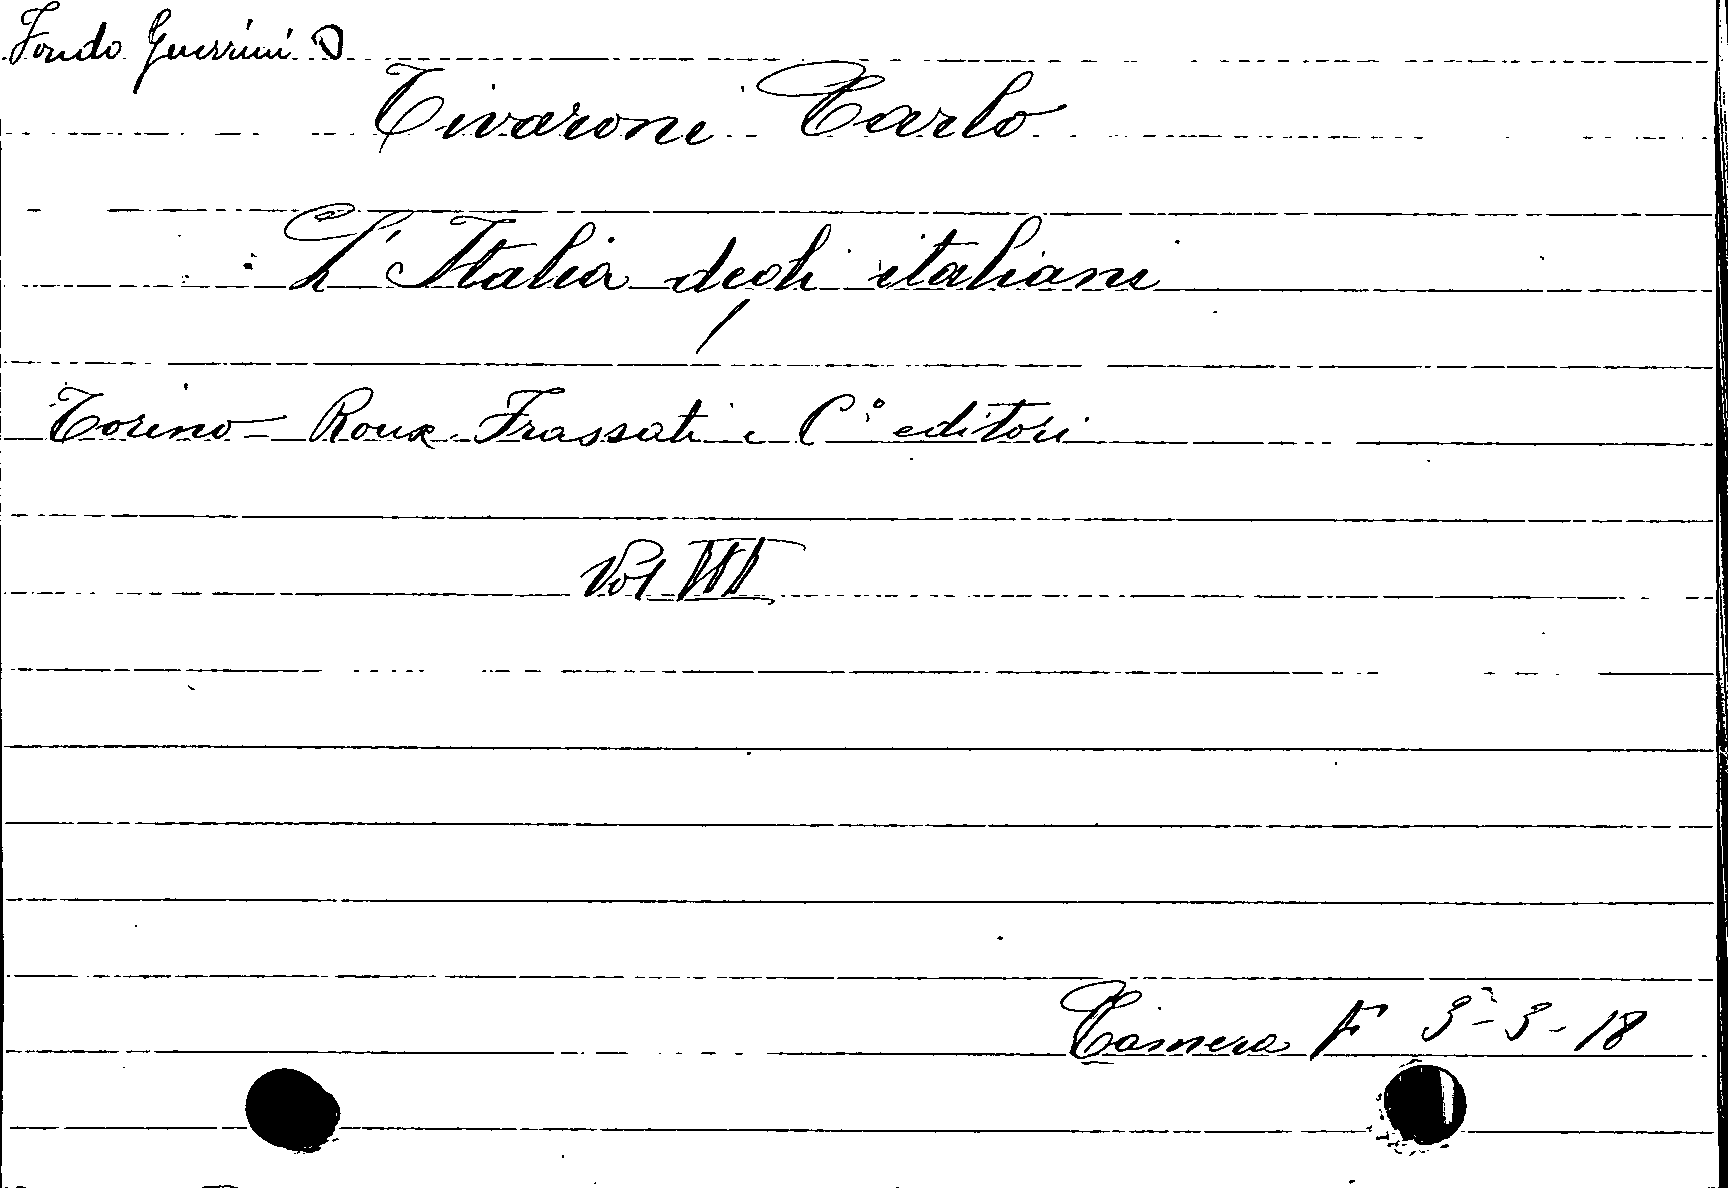 Fondo Guerrini D
Tivaroni Carlo
L'Italia degli italiani
Torino - Roux Frassati e C° editori
Vol III
Camera F 3-3-18